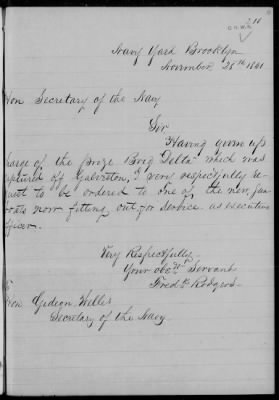 210
Navy Yard Brooklyn
November 28th 1861
Hon Secretary of the Navy
Sir
Having given up
harge of the prize Brig Delta which was
ptured off Galveston, I very respectfully re-
uest to be ordered to one of the new gun
oats now fitting out for service as executive
fficer.
Very Respectfully
Your obdt Servant
Fredk Rodgers
Hon Gideon Welles
Secretary of the Navy